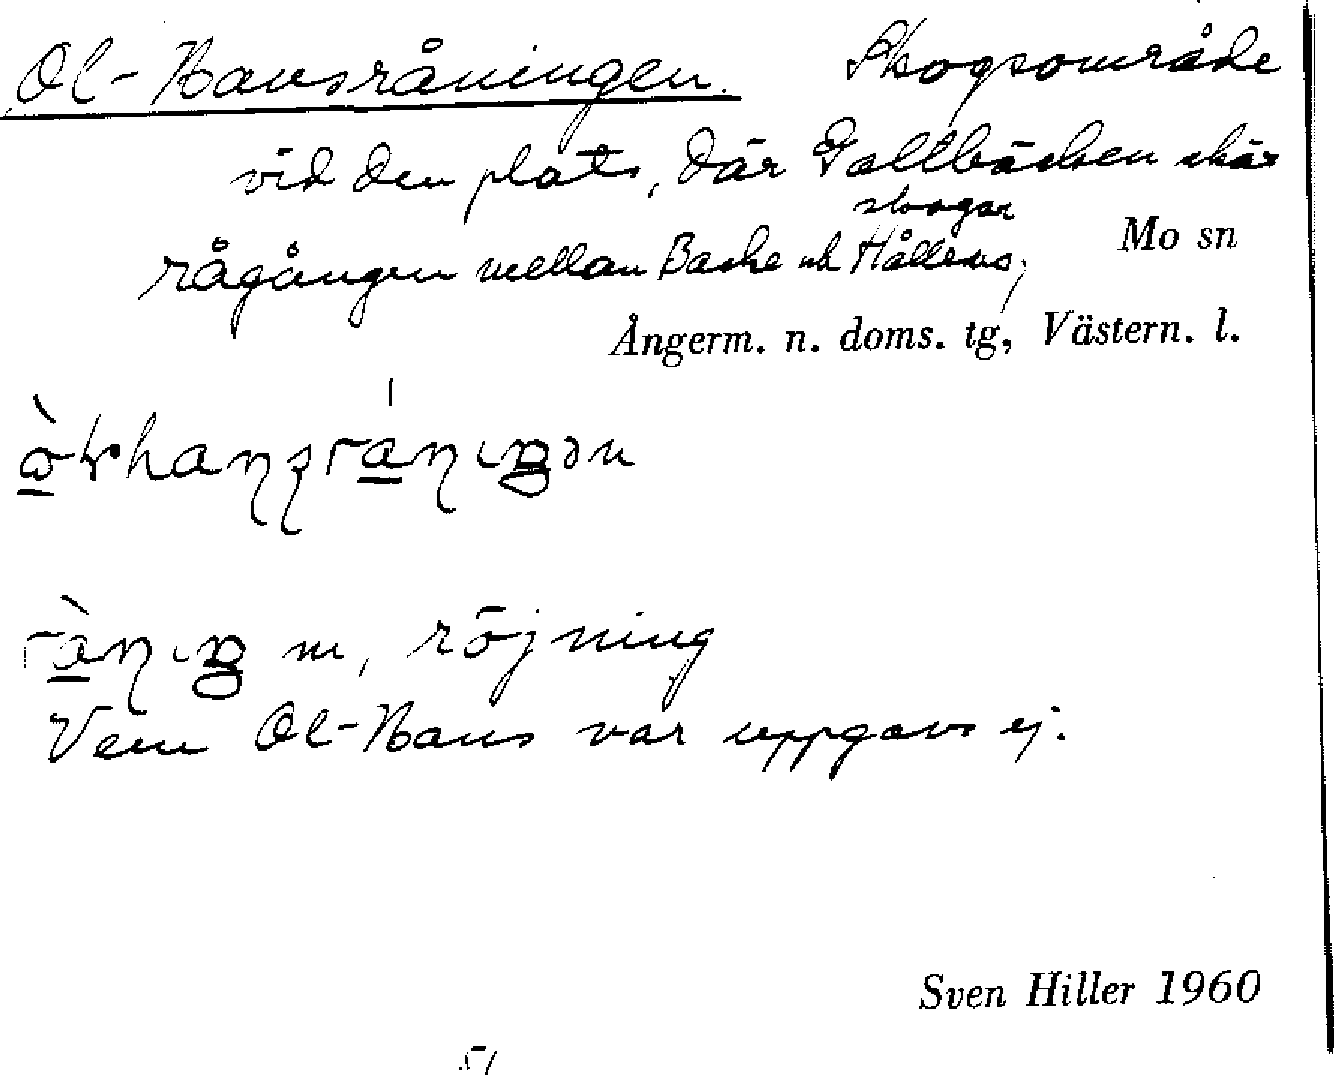 Ol-Hansråningen. Skogsområde
vid den plats, där Tallbäcken skär
skogar
rågången mellan Backe och Hållens,
Mo sn
Ångerm. n. doms. tg, Västern. l.
m, röjning
Vem Ol-Hans var uppgavs ej.
Sven Hiller 1960
51